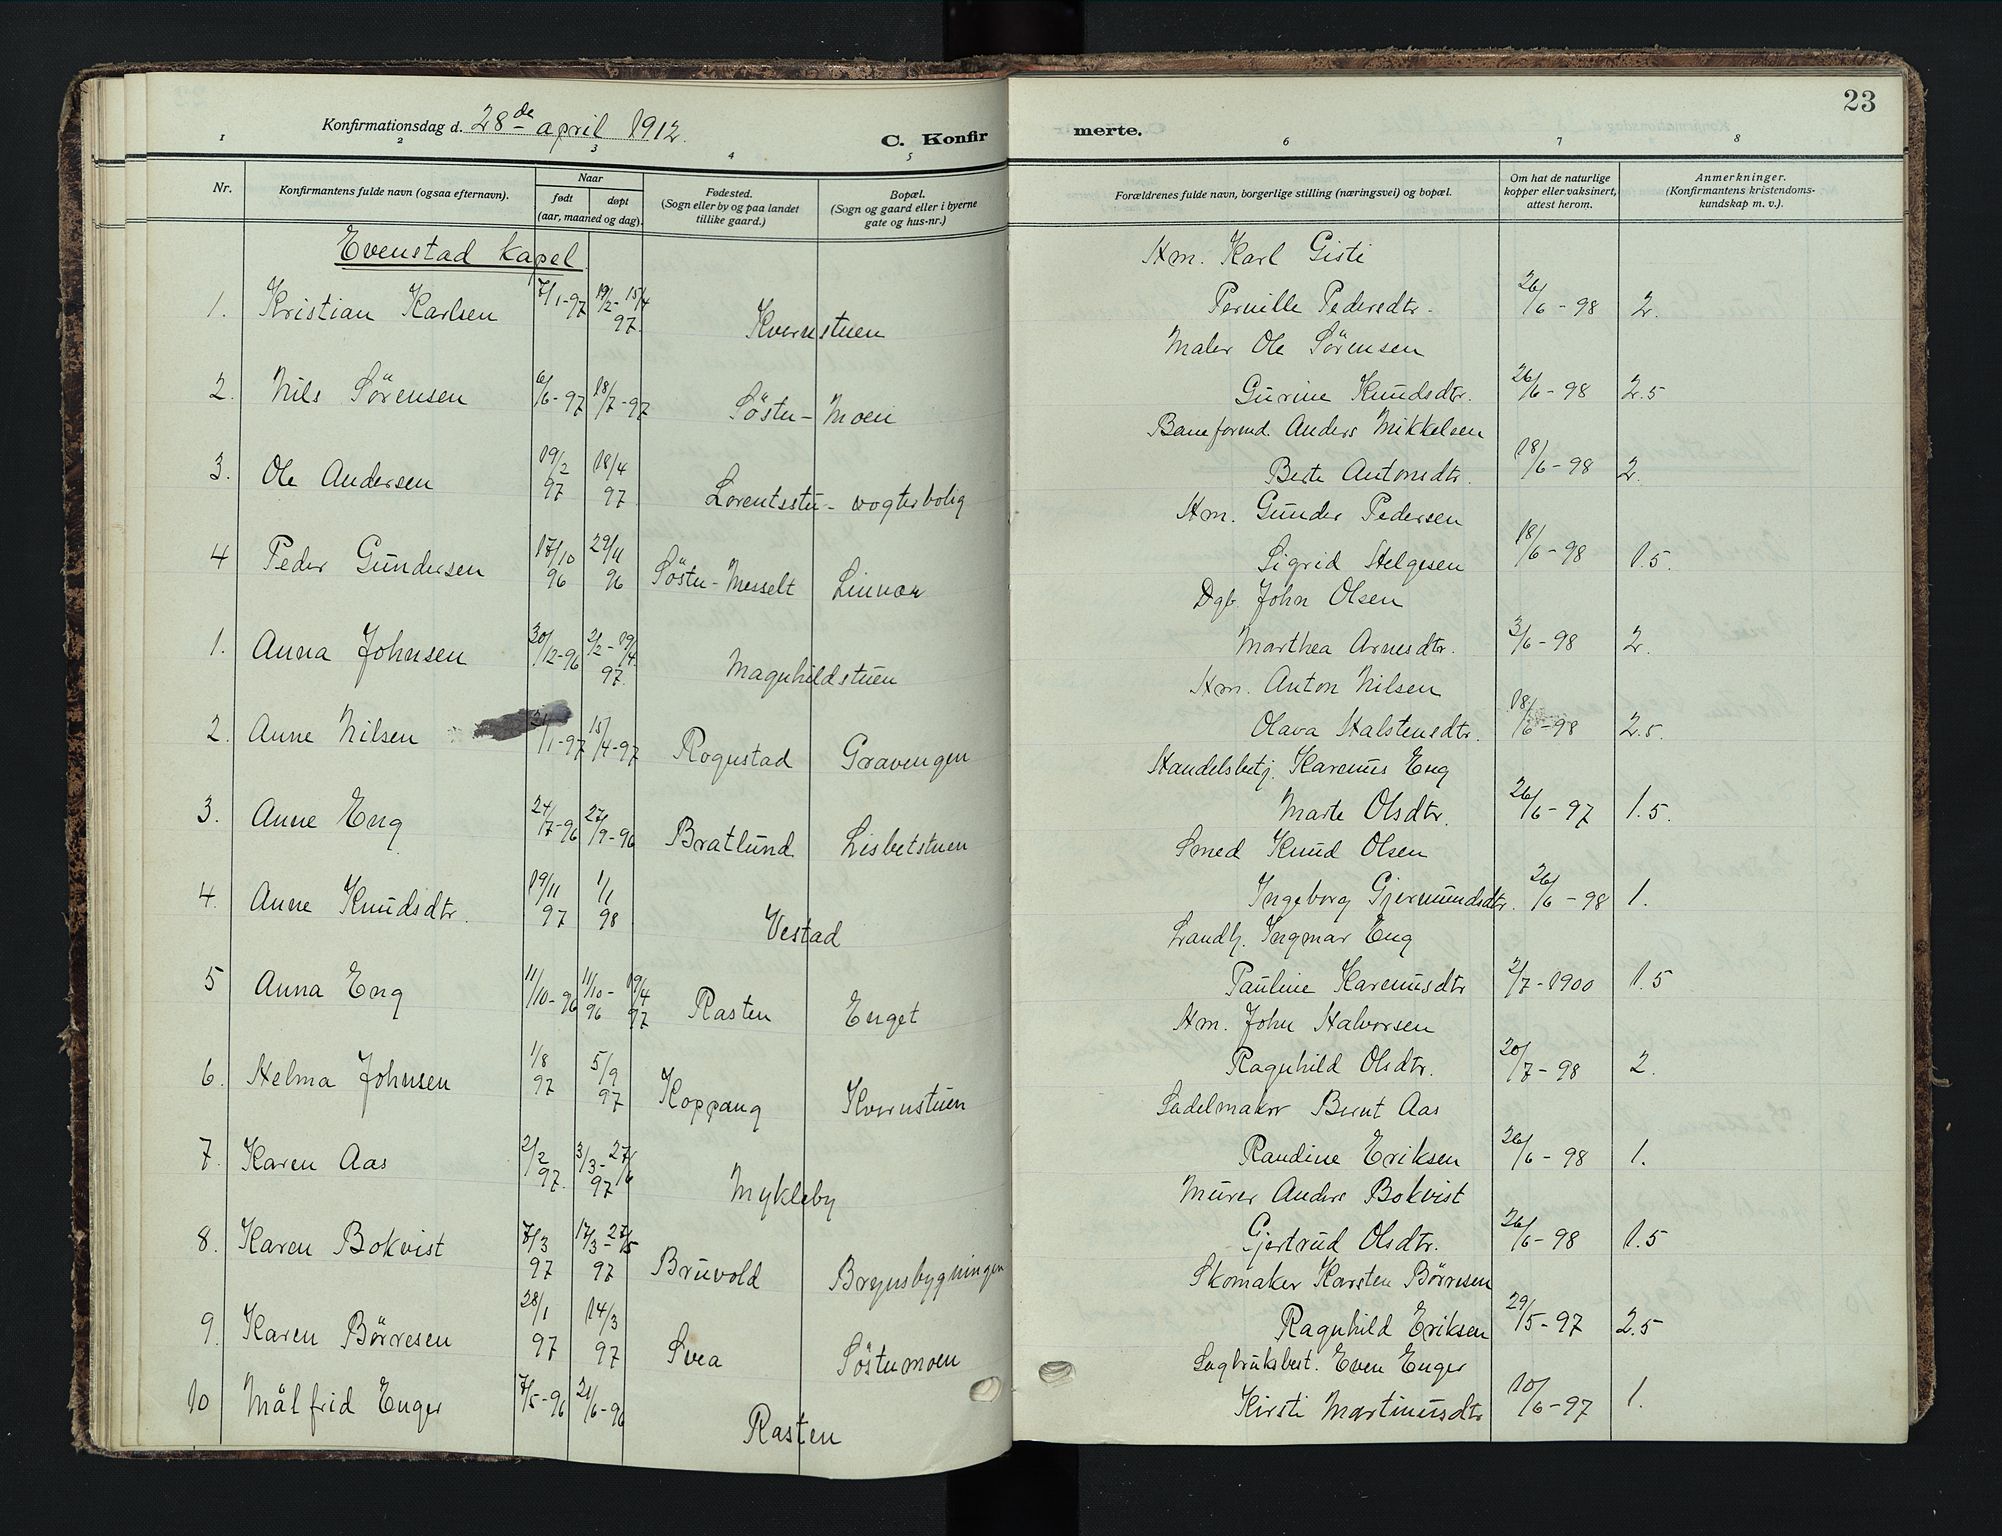 23
Konfirmationsdag d. 28de april 1912.
C. Konfir merte.
1 2 3 4 5 6 7 8
Nr.
Konfirmantens fulde navn (ogsaa efternavn).
Naar
født døpt
(aar, maaned og dag).
Fødested.
(Sogn eller by og paa landet
tillike gaard.)
Bopæl.
(Sogn og gaard eller i byerne
gate og hus-nr.)
Forældrenes fulde navn, borgerlige stilling (næringsvei) og bopæl.
Om hat de naturlige
kopper eller vaksinert,
attest herom.
Anmerkninger.
(Konfirmantens kristendoms-
kundskap m. v.)
Evenstad kapel
Hm. Karl Gisti
1. Kristian Karlsen 7/1-97 19/2-15/4 97 Kvernstuen Pernille Pedersdtr. 26/6-98 2.
Maler Ole Sörensen
2. Nils Sörensen 6/6-97 18/7-97 Söstu-Moen Gurine Knudsdtr. 26/6-98 2.5
Baneformd. Anders Mikkelsen
3. Ole Andersen 19/2 97 18/4 97 Lorentsstu-vogterbolig Berte Antonsdtr. 18/6-98 2.
Hm. Gunder Pedersen
4 Peder Gundersen 17/10 96 29/11 96 Söstu-Messelt Linnæ Sigrid Helgesen 18/6-98 1.5.
Dgb. John Olsen
1. Anna Johnsen 30/12-96 2/2-19/4 97. Magnhildstuen Marthea Arnesdtr. 3/6-98 2.
Hm. Anton Nilsen
2. Anne Nilsen 21/1-97 15/4-97 Rognstad Gravengen Olava Halstensdtr. 18/6-98 2.5.
Handelsbetj. Karenus Eng
3. Anne Eng 24/7-96 27/9-96 Bratlund Lisbetstuen Marte Olsdtr. 26/6-97 1.5.
Smed Knud Olsen
4. Anne Knudsdtr. 19/11 97 1/1 98 Vestad Ingeborg Gjermundsdtr. 26/6-98 1.
Landh. Ingmar Eng
5 Anna Eng 11/10-96 11/10-19/4 96 97 Rasten Enget Pauline Karenusdtr 2/7-1900 1.5
Hm. John Halvorsen
6. Helma Johnsen 1/8 97 5/9 97 Koppang Kvernstuen Ragnhild Olsdtr. 20/7-98 2.
Sadelmaker Bernt Aas
7. Karen Aas 2/2 97. 3/3-27/6 97 Mykleby Randine Eriksen 26/6-98 1.
Murer Anders Bokvist
8. Karen Bokvist 7/3 97 17/3-27/5 97 Bruvold Brynsbygningen Gjertrud Olsdtr. 26/6-98 1.5
Skomaker Karsten Börresen
9. Karen Börresen 28/1 97 14/3 97 Svea Söstumoen Ragnhild Eriksen 29/5-97 2.5
Sagbruksbest. Even Enger
10 Målfrid Enger 7/5-96 21/6-96 Rasten Kirsti Martinusdtr 10/6-97 1.